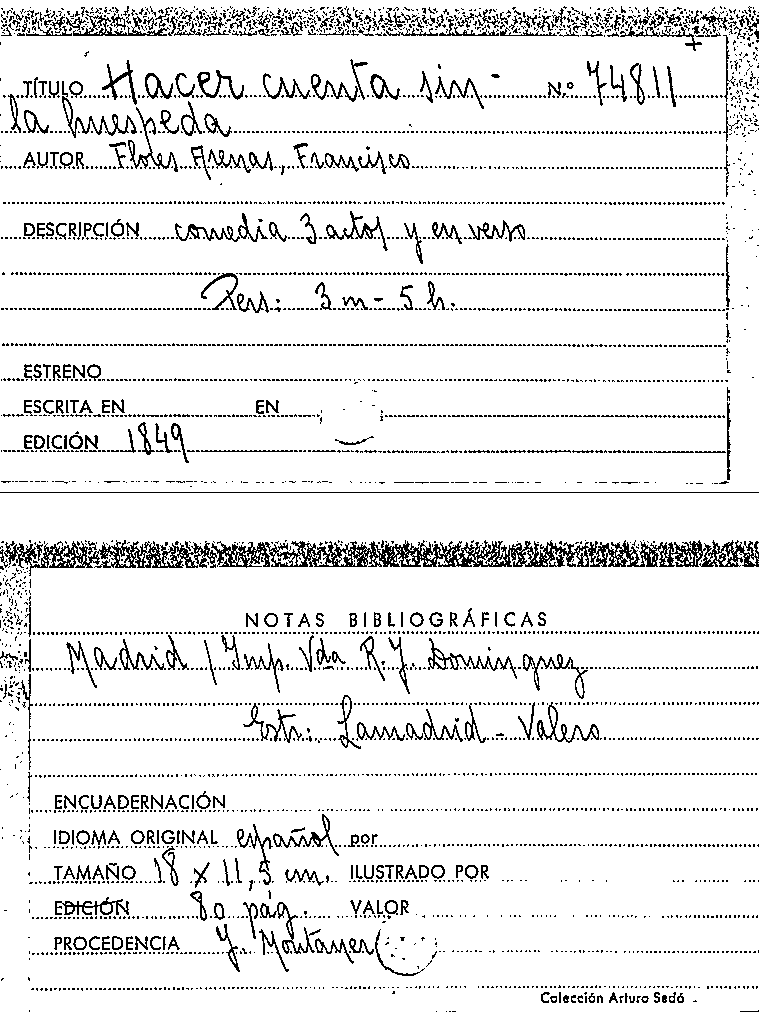 TÍTULO Hacer cuenta sin- N.º 74811
la huespeda
AUTOR Flores Arenas, Francisco
DESCRIPCIÓN comedia 3 actos y en verso
Pers: 3 m - 5 h.
ESTRENO
ESCRITA EN EN
EDICIÓN 1849
NOTAS BIBLIOGRÁFICAS
Madrid / Imp. Vda R. J. Dominguez
Estr: Lamadrid - Valero
ENCUADERNACIÓN
IDIOMA ORIGINAL español por
TAMAÑO 18 x 11,5 cm. ILUSTRADO POR
EDICIÓN 80 pág. VALOR
PROCEDENCIA J. Montaner
Colección Arturo Sedó